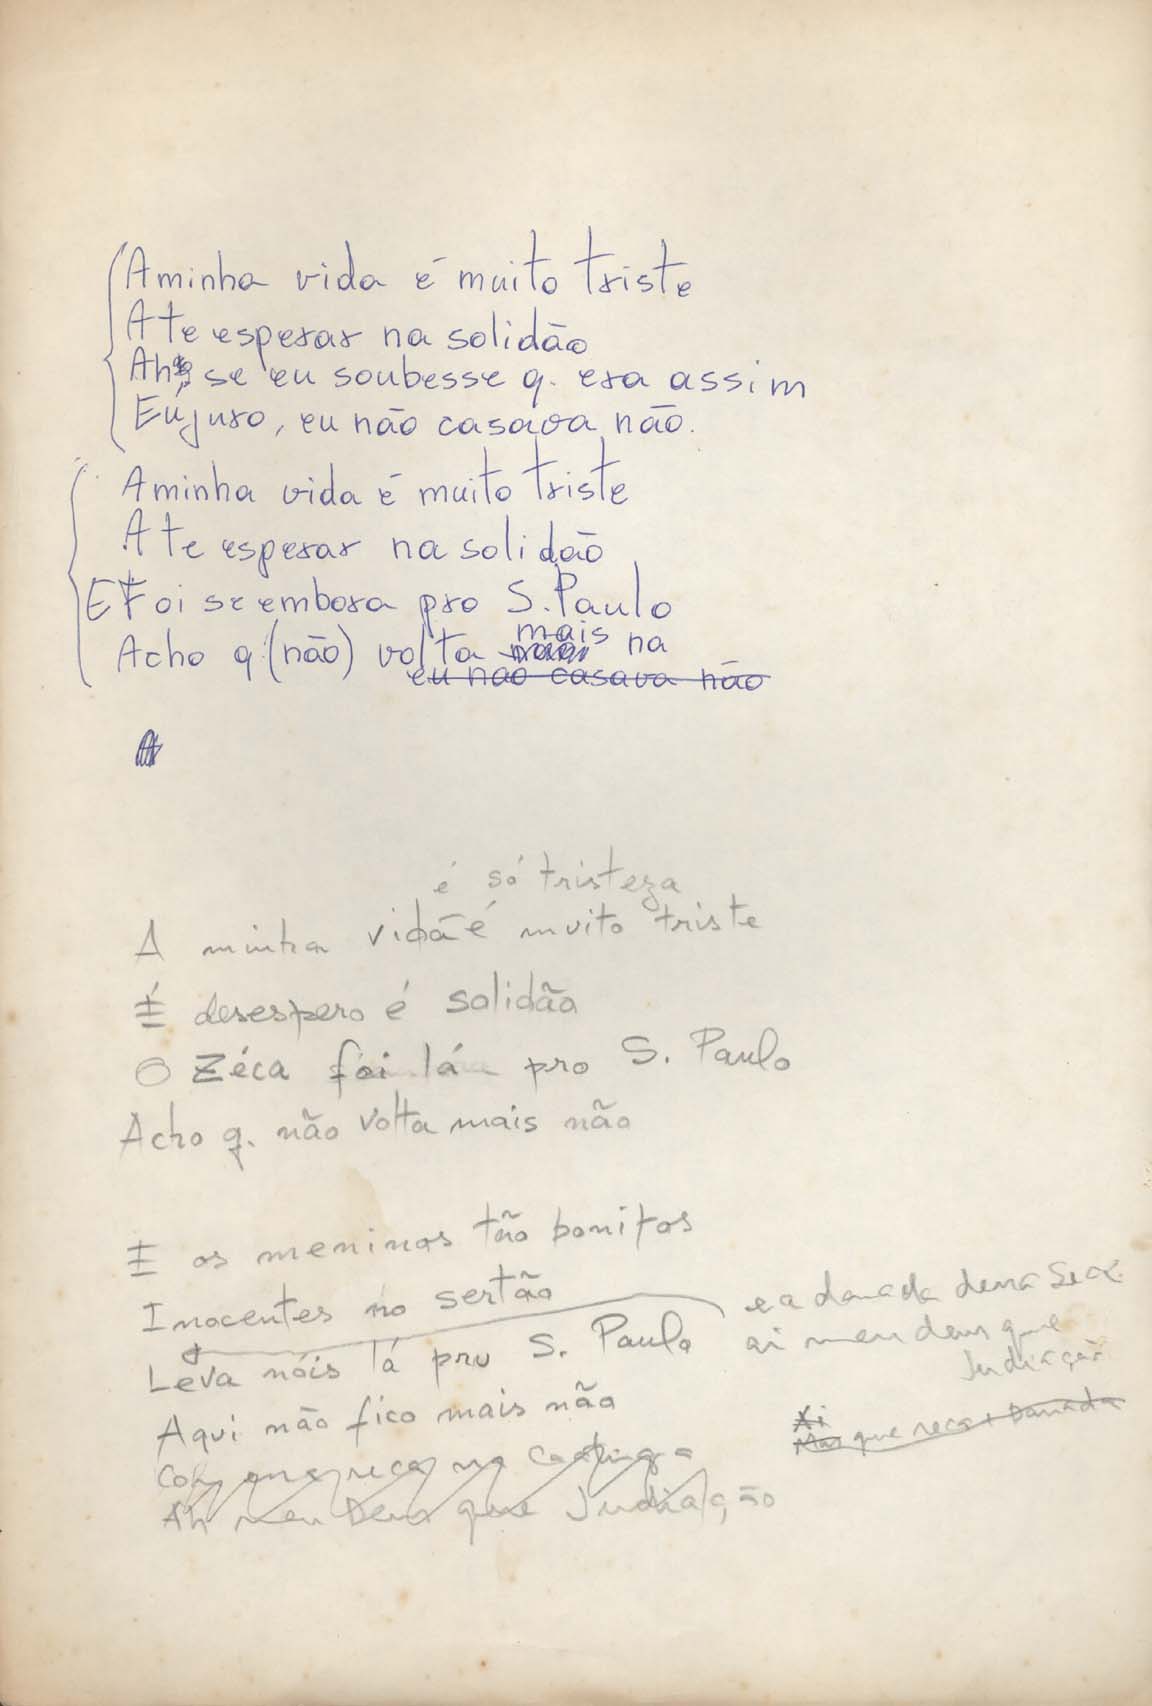 A minha vida é muito triste
A te esperar na solidão
Ah, se eu soubesse q. era assim
Eu juro, eu não casava não.
A minha vida é muito triste
A te esperar na solidão
E Foi se embora pro S. Paulo
mais
Acho q (não) volta na
eu nao casava não
A
é só tristeza
A minha vida é muito triste
É desespero é solidão
O Zéca foi lá pro S. Paulo
Acho q. não volta mais não
E os meninos tão bonitos
Inocentes no sertão
e a danada dessa Seca
Leva nóis lá pru S. Paulo
ai meu deus que
Judiação
Aqui não fico mais não
Xi
que seca Danada
que seca na Caatinga
Ah meu Deus que Judiação